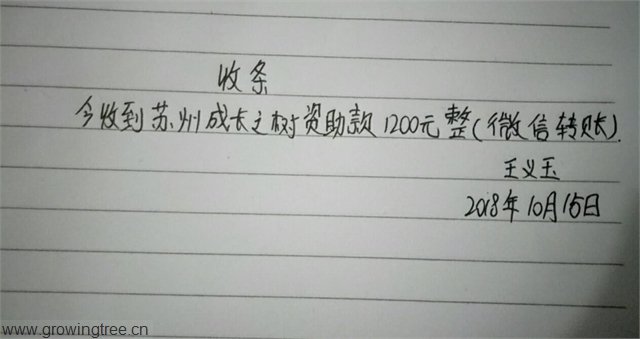 收条
今收到苏州成长之树资助款1200元整(微信转账).
王义玉
2018年10月15日
www.growingtree.cn